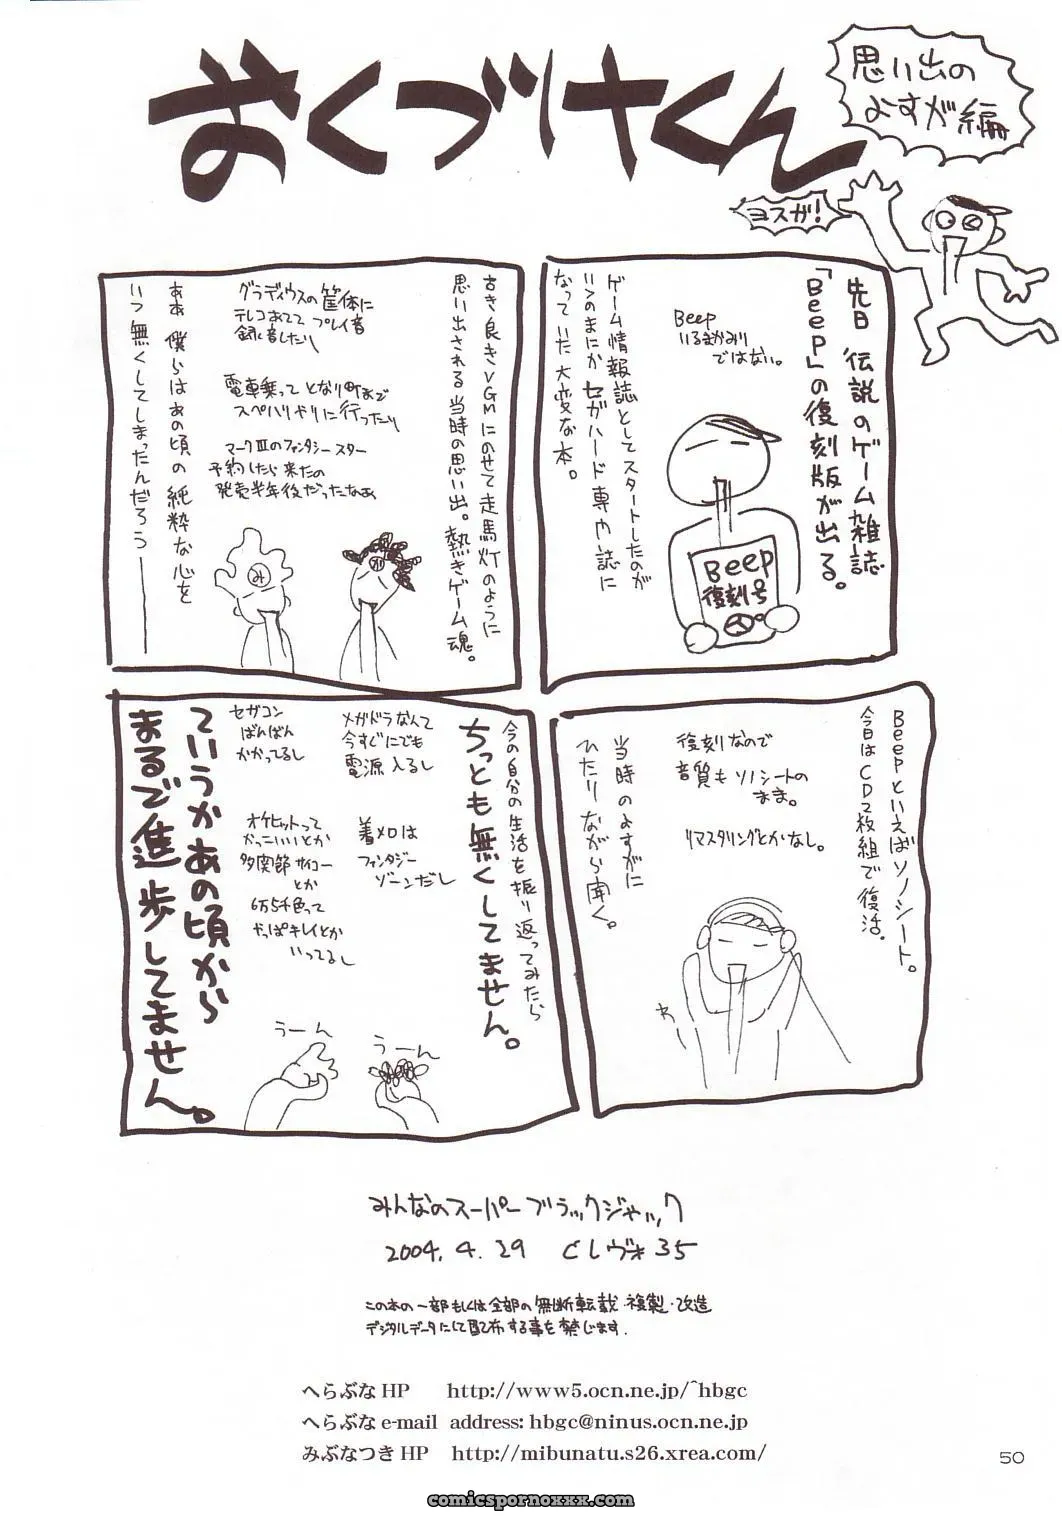 おくづけくん
思い出の
よすが編
ヨスガ!
先日 伝説のゲーム雑誌
「Beep」の復刻版が出る。
Beep
いるまかみり
ではない。
Beep
復刻号
ゲーム情報誌としてスタートしたのが
いつのまにか セガハード専門誌に
なっていた大変な本。
古き良きVGMにのせて走馬灯のように
思い出される当時の思い出。熱きゲーム魂。
グラディウスの筐体に
テレコあてて プレイ音
録音したり
電車乗って となり町まで
スペハリドリに行ったり
マークⅢのファンタシースター
予約したら来たの
発売半年後だったなぁ
み
み
ああ 僕らはあの頃の純粋な心を
いつ無くしてしまったんだろう――
Beepといえばソノシート。
今日はCD2枚組で復活。
復刻なので
音質も ソノシートの
まま。
リマスタリングとかなし。
当時のよすがに
ひたりながら聞く。
今の自分の生活を振り返ってみたら
ちっとも無くしてません。
メガドラなんて
今すぐにでも
電源入るし
着メロは
ファンタジー
ゾーンだし
セガコン
ばんばん
かかってるし
オケヒットって
かっこいいとか
多関節サイコー
とか
6万5千色って
やっぱキレイとか
いってるし
うーん
うーん
ていうかあの頃から
まるで進歩してません。
みんなのスーパーブラックジャック
2004.4.29 としヴォ35
この本の一部もしくは全部の無断転載・複製・改造
デジタルデータにして配布する事を禁じます.
へらぶな HP http://www5.ocn.ne.jp/~hbgc
へらぶな e-mail address: hbgc@ninus.ocn.ne.jp
みぶなつき HP http://mibunatu.s26.xrea.com/
50
comicspornoxxx.com